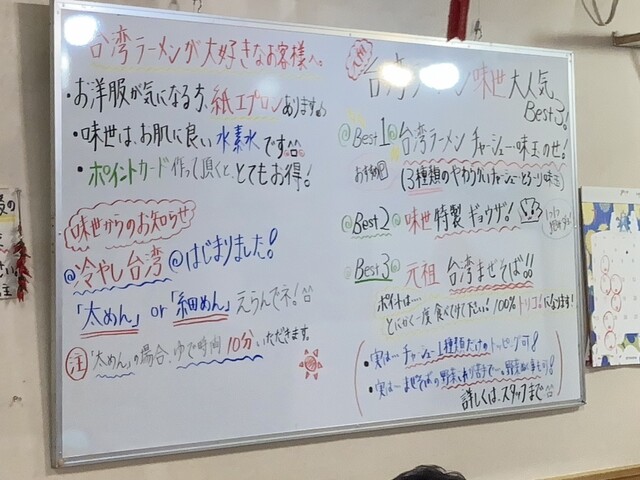 台湾ラーメンが大好きなお客様へ。
・お洋服が気になる方、紙エプロンあります
・味世は、お肌に良い水素水です
・ポイントカード作って頂くと、とてもお得!
味世からのお知らせ
@冷やし台湾@はじまりました!
「太めん」or「細めん」えらんでネ!
注 「太めん」の場合、ゆで時間10分、いただきます。
台湾ラーメン味世大人気
Best3!
@Best1@台湾ラーメンチャーシュー・味玉のせ!
おすすめ
(3種類のやわらかいチャーシューとろ〜り味玉)
@Best2@味世特製ギョウザ!
@Best3@元祖台湾まぜそば!!
ポイントは…
とにかく一度食べてみて下さい!100%トリコになります!
・実は…チャーシュー1種類だけのトッピング可!
・実は…まぜそばの野菜
詳しくは、スタッフまで